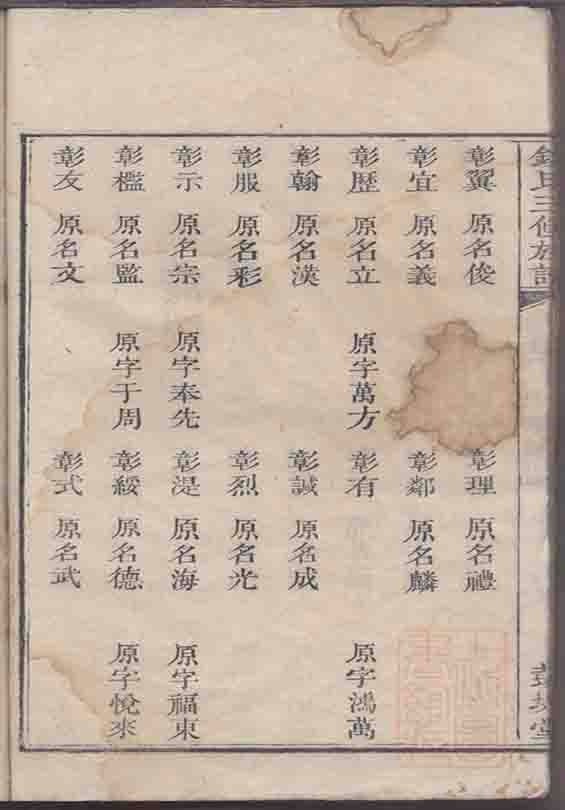 彰翼 原名俊 彰理 原名禮
彰宜 原名義 彰鄰 原名麟
彰歷 原名立 原字萬方 彰有 原字鴻萬
彰翰 原名漢 彰誠 原名成
彰服 原名彩 彰烈 原名光
彰示 原名宗 原字奉先 彰湜 原名海 原字福東
彰檻 原名監 原字于周 彰綏 原名德 原字悅來
彰友 原名文 彰式 原名武